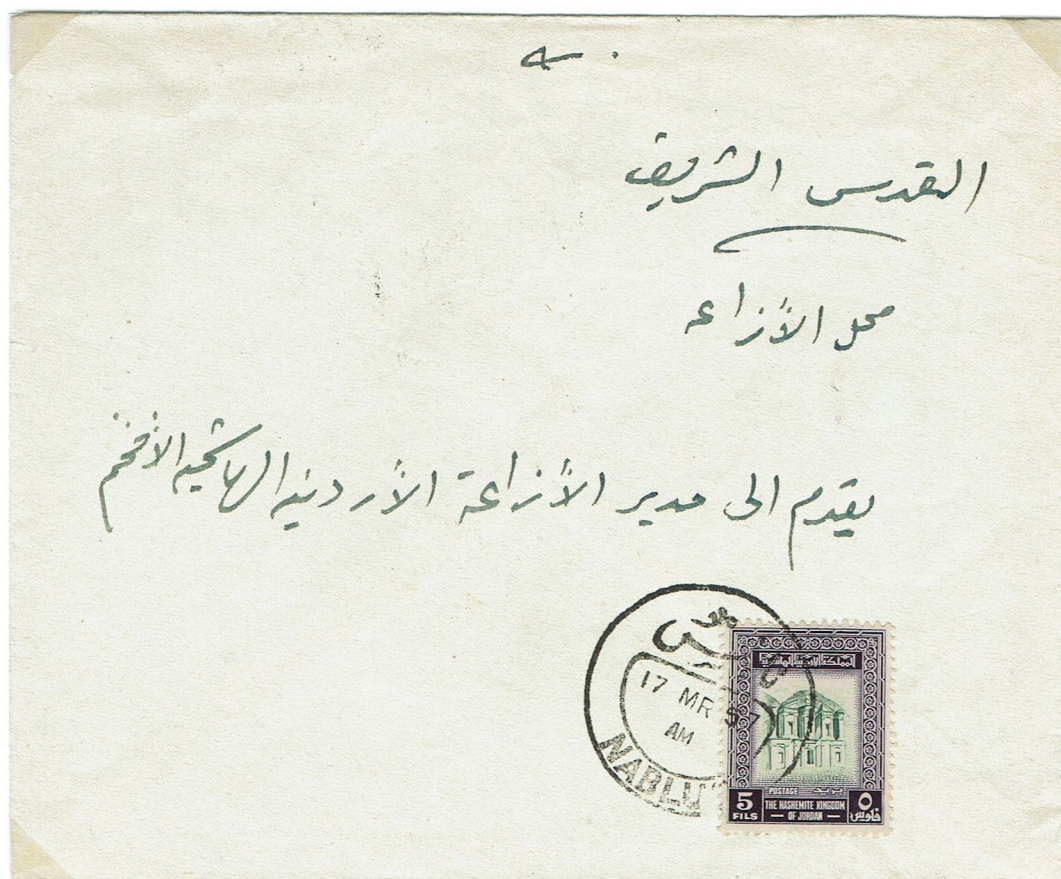 القدس الشريف
محل الأزاعه
يقدم الى مدير الأزاعة الأردنيه الهاشميه الأفخم
نابلس
17 MR 57
AM
NABLU
المملكة الأردنية الهاشمية
POSTAGE بريد
5 FILS
THE HASHEMITE KINGDOM
OF JORDAN
٥ فلوس